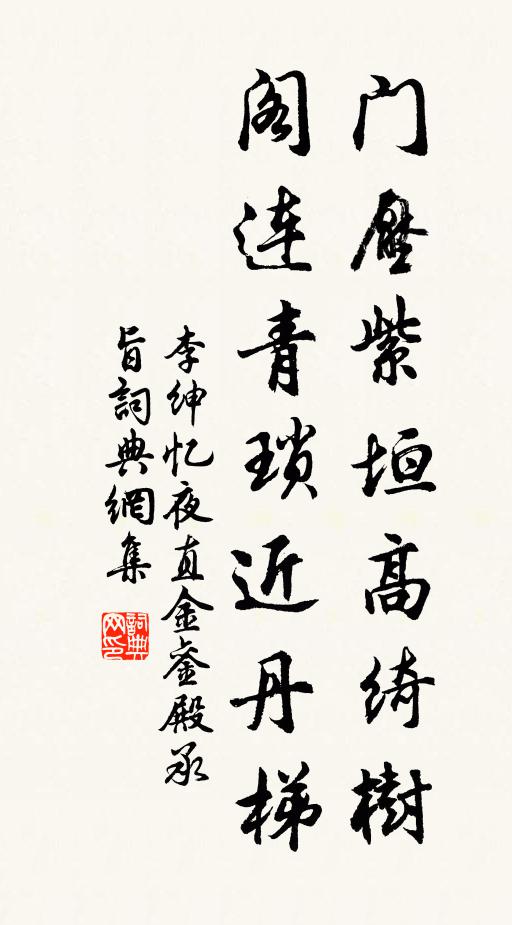 门壓紫垣高绮樹
阁连青琐近丹梯
李绅忆夜直金銮殿承
旨詞典網集
詞典网印